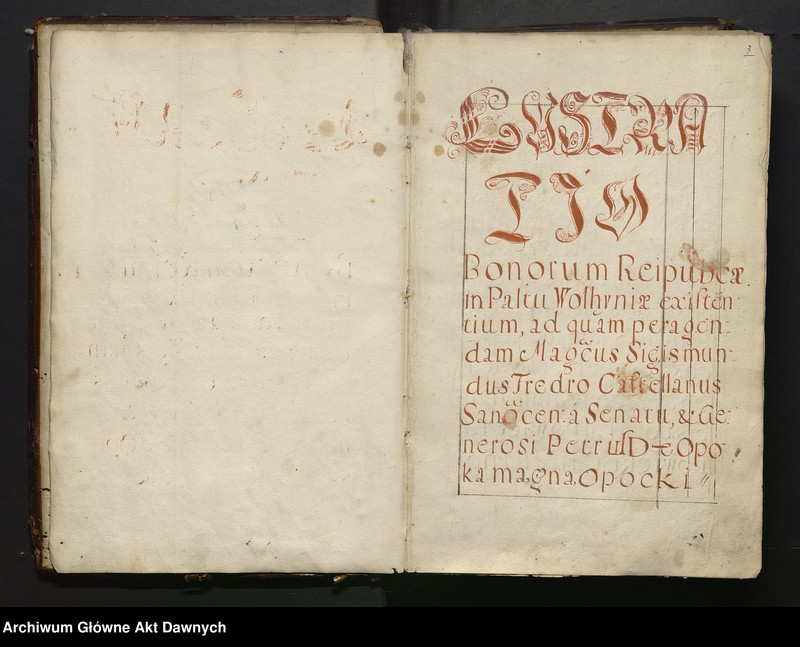 3
LUSTRA
TIO
Bonorum Reipubcæ
in Paltu Wolhyniæ existen:
tium, ad quam peragen:
dam Magcus Sigismun:
dus Fredro Castellanus
Sanocen: à Senatu, & Ge:
nerosi Petrus De Opo:
ka magna, Opocki //
Archiwum Główne Akt Dawnych